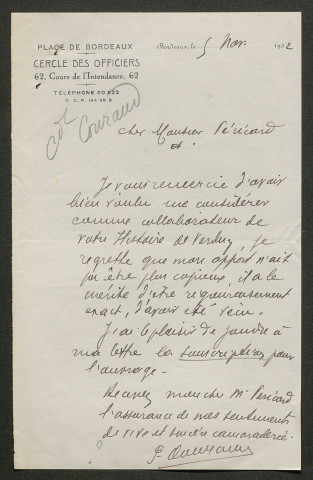 PLACE DE BORDEAUX
CERCLE DES OFFICIERS
62, Cours de l'Intendance, 62
TÉLÉPHONE 80.833
Bordeaux, le 5 Nov. 1932
Cher Monsieur Péricard
Je vous remercie d'avoir
bien voulu me considérer
comme collaborateur de
votre Histoire de Verdun, je
regrette que mon apport n'ait
pu être plus copieux, il a le
mérite d'être rigoureusement
exact, d'avoir été vécu.
J'ai le plaisir de joindre à
ma lettre la souscription pour
l'ouvrage.
Recevez mon cher Mr Péricard
l'assurance de mes sentiments
de vive et sincère camaraderie.